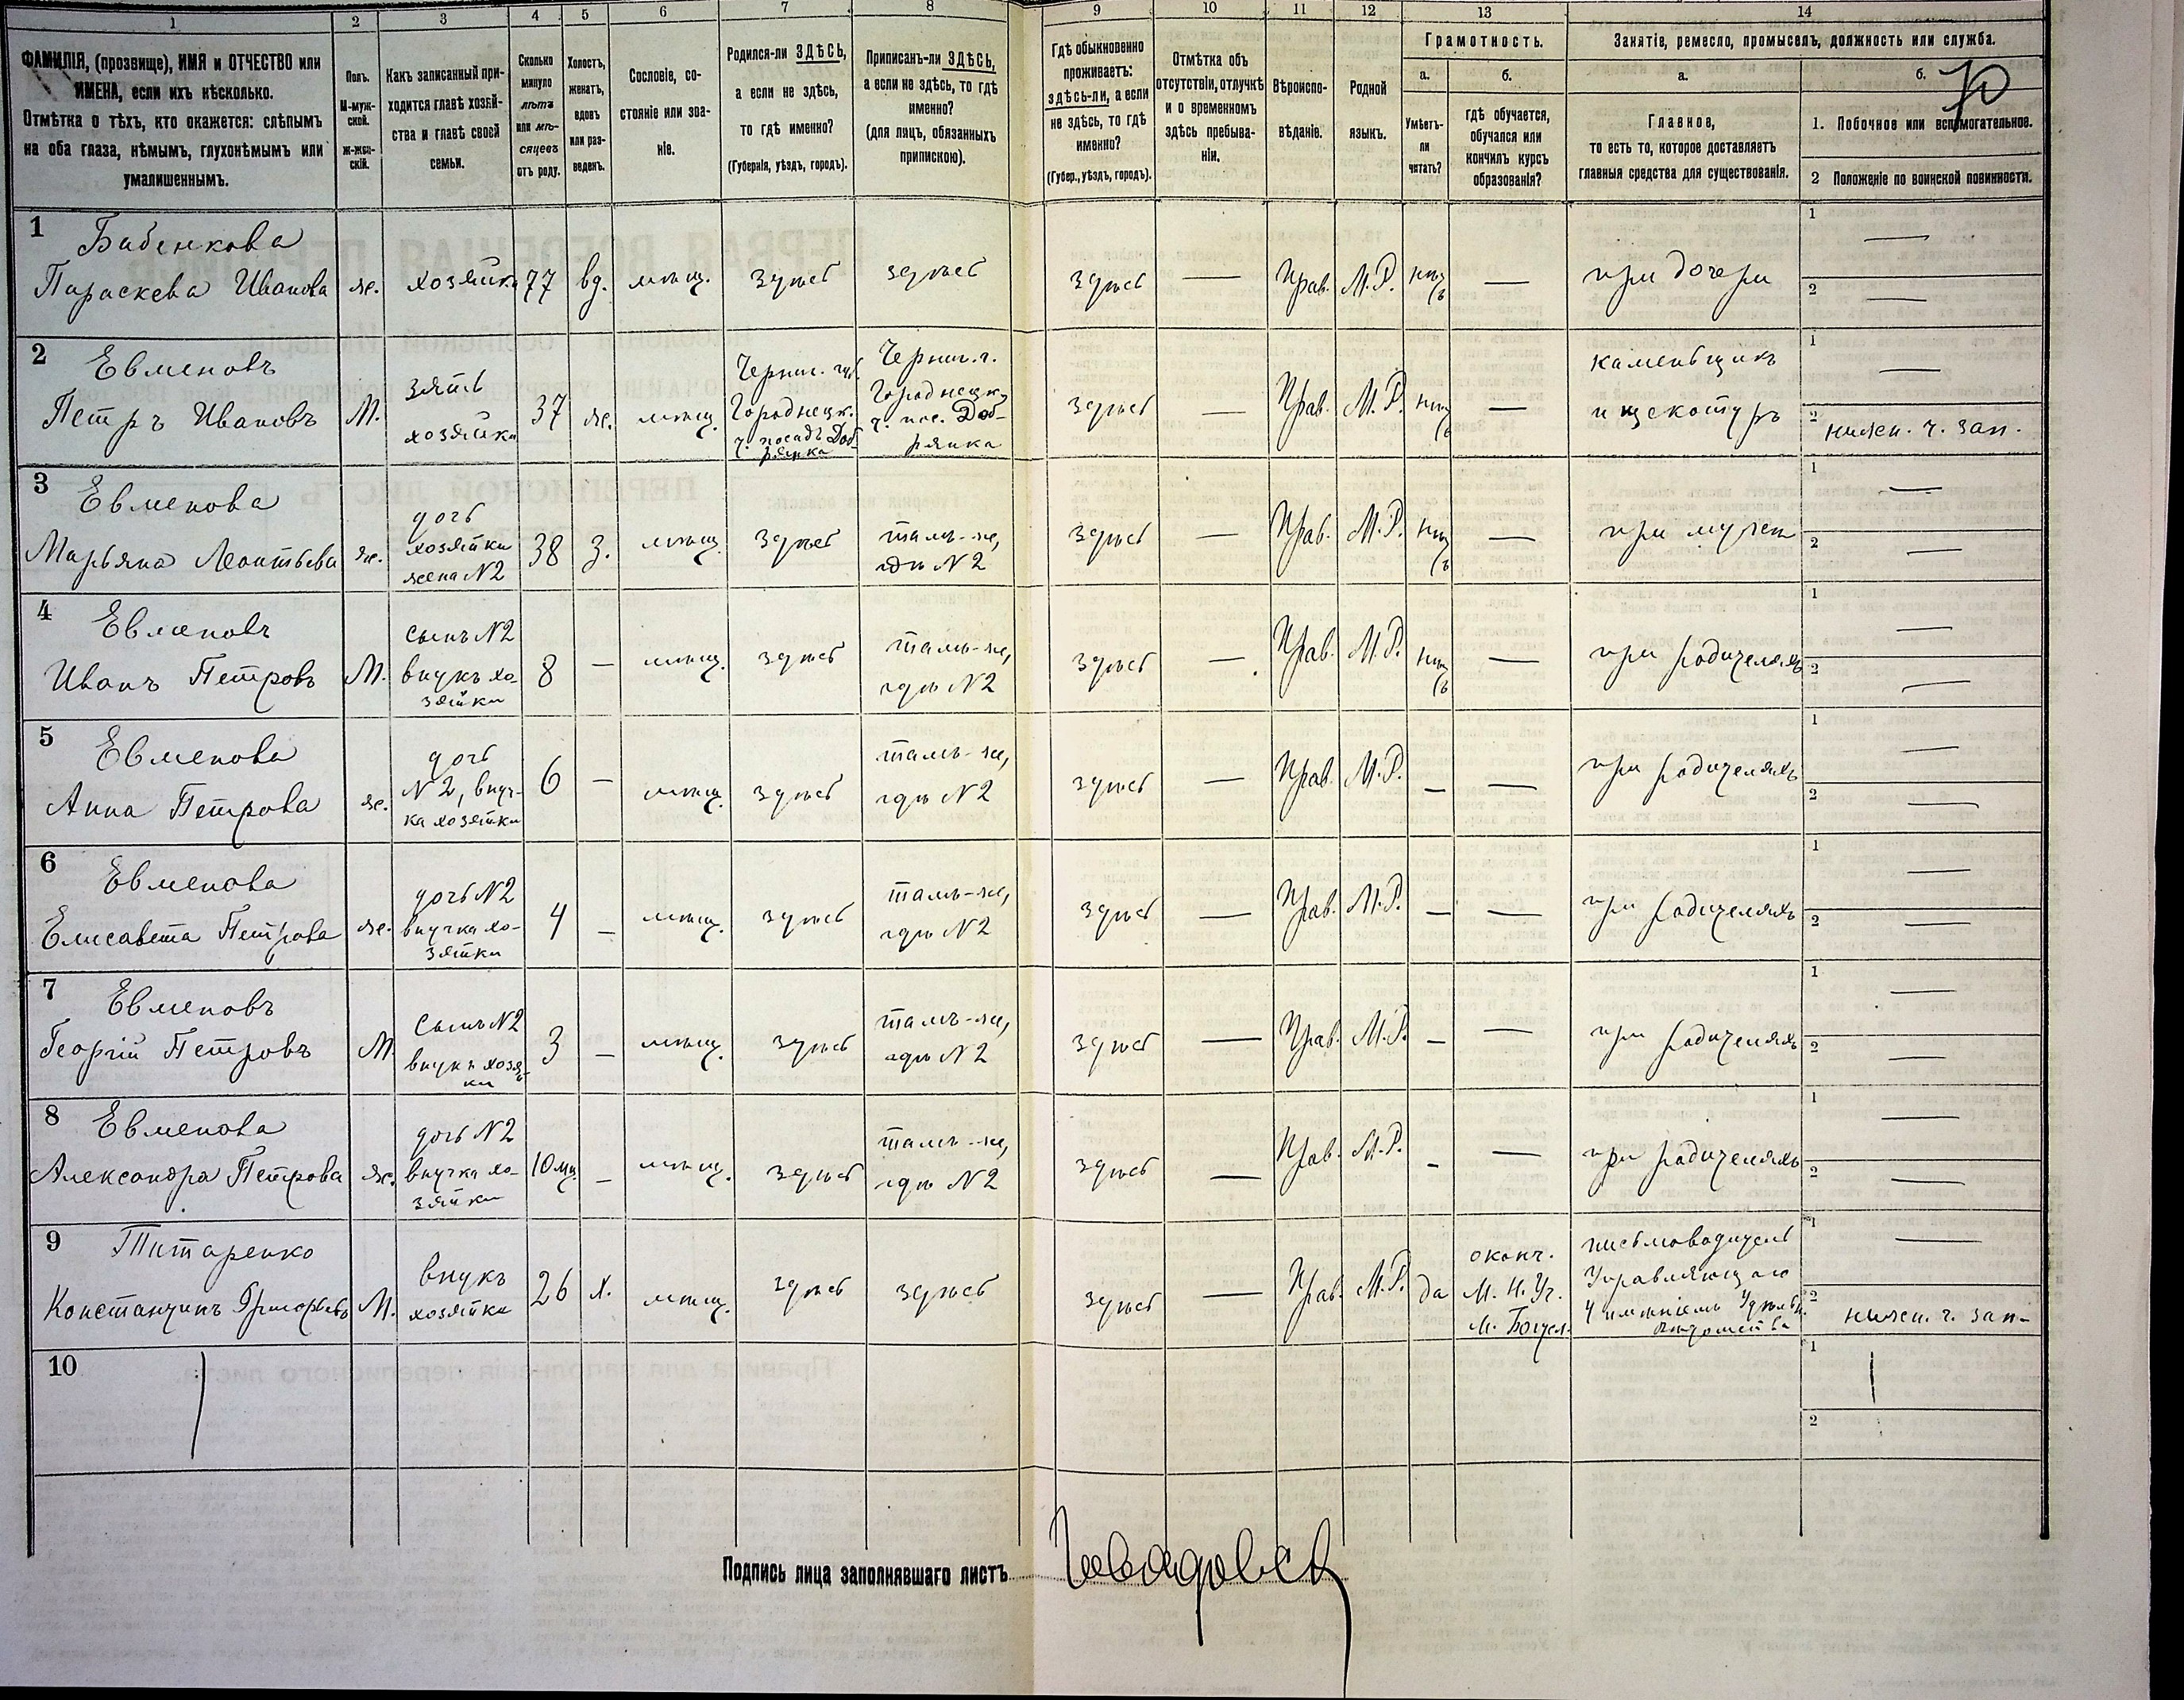 1 2 3 4 5 6 7 8 9 10 11 12 13 14
ФАМИЛІЯ, (прозвище), ИМЯ и ОТЧЕСТВО или
ИМЕНА, если ихъ нѣсколько.
Отмѣтка о тѣхъ, кто окажется: слѣпымъ
на оба глаза, нѣмымъ, глухонѣмымъ или
умалишеннымъ.
Полъ.
М-муж-
ской.
Ж-жен-
скій.
Какъ записанный при-
ходится главѣ хозяй-
ства и главѣ своей
семьи.
Сколько
минуло
лѣтъ
или мѣ-
сяцевъ
отъ роду.
Холостъ,
женатъ,
вдовъ
или раз-
веденъ.
Сословіе, со-
стояніе или зва-
ніе.
Родился-ли ЗДѢСЬ,
а если не здѣсь,
то гдѣ именно?
(Губернія, уѣздъ, городъ).
Приписанъ-ли ЗДѢСЬ,
а если не здѣсь, то гдѣ
именно?
(для лицъ, обязанныхъ
припискою).
Гдѣ обыкновенно
проживаетъ:
здѣсь-ли, а если
не здѣсь, то гдѣ
именно?
(Губер., уѣздъ, городъ).
Отмѣтка объ
отсутствіи, отлучкѣ
и о временномъ
здѣсь пребыва-
ніи.
Вѣроиспо-
вѣданіе.
Родной
языкъ.
Грамотность.
а.
Умѣетъ-
ли
читать?
б.
гдѣ обучается,
обучался или
кончилъ курсъ
образованія?
Занятіе, ремесло, промыселъ, должность или служба.
а.
Главное,
то есть то, которое доставляетъ
главныя средства для существованія.
б.
1. Побочное или вспомогательное.
2 Положеніе по воинской повинности.
1
Бабенкова
Параскева Иванова
ж.
хозяйка
77
вд.
мѣщ.
здѣсь
здѣсь
здѣсь
—
Прав.
М.Р.
нѣтъ
—
при дочери
1 —
2 —
2
Евменовъ
Петръ Ивановъ
М.
зять
хозяйки
37
ж.
мѣщ.
Черниг. губ.
Городнецк.
у. посадъ Доб-
рянка
Черниг. г.
Городнецк.
у. пос. Доб-
рянка
здѣсь
—
Прав.
М.Р.
нѣтъ
—
каменьщикъ
и щекотуръ
1 —
2 нижн. ч. зап.
3
Евменова
Марьяна Леонтьева
ж.
дочь
хозяйки
жена N2
38
з.
мѣщ.
здѣсь
тамъ-же,
гдѣ N2
здѣсь
—
Прав.
М.Р.
нѣтъ
—
при мужѣ
1 —
2 —
4
Евменовъ
Иванъ Петровъ
М.
сынъ N2
внукъ хо-
зяйки
8
—
мѣщ.
здѣсь
тамъ-же,
гдѣ N2
здѣсь
—
Прав.
М.Р.
нѣтъ
—
при родителяхъ
1 —
2 —
5
Евменова
Анна Петрова
ж.
дочь
N2, внуч-
ка хозяйки
6
—
мѣщ.
здѣсь
тамъ-же,
гдѣ N2
здѣсь
—
Прав.
М.Р.
—
—
при родителяхъ
1 —
2 —
6
Евменова
Елисавета Петрова
ж.
дочь N2
внучка хо-
зяйки
4
—
мѣщ.
здѣсь
тамъ-же,
гдѣ N2
здѣсь
—
Прав.
М.Р.
—
—
при родителяхъ
1 —
2 —
7
Евменовъ
Георгій Петровъ
М.
Сынъ N2
внукъ хозяй-
ки
3
—
мѣщ.
здѣсь
тамъ-же,
гдѣ N2
здѣсь
—
Прав.
М.Р.
—
—
при родителяхъ
1 —
2 —
8
Евменова
Александра Петрова
ж.
дочь N2
внучка хо-
зяйки
10 мц.
—
мѣщ.
здѣсь
тамъ-же,
гдѣ N2
здѣсь
—
Прав.
М.Р.
—
—
при родителяхъ
1 —
2 —
9
Титаренко
Константинъ Григорьевъ
М.
внукъ
хозяйки
26
х.
мѣщ.
здѣсь
здѣсь
здѣсь
—
Прав.
М.Р.
да
оконч.
М. Н. Уч.
письмоводитель
Управляющаго
имѣніемъ Удѣльн.
1 —
2 нижн. ч. зап.
10
1
2
Подпись лица заполнявшаго листъ